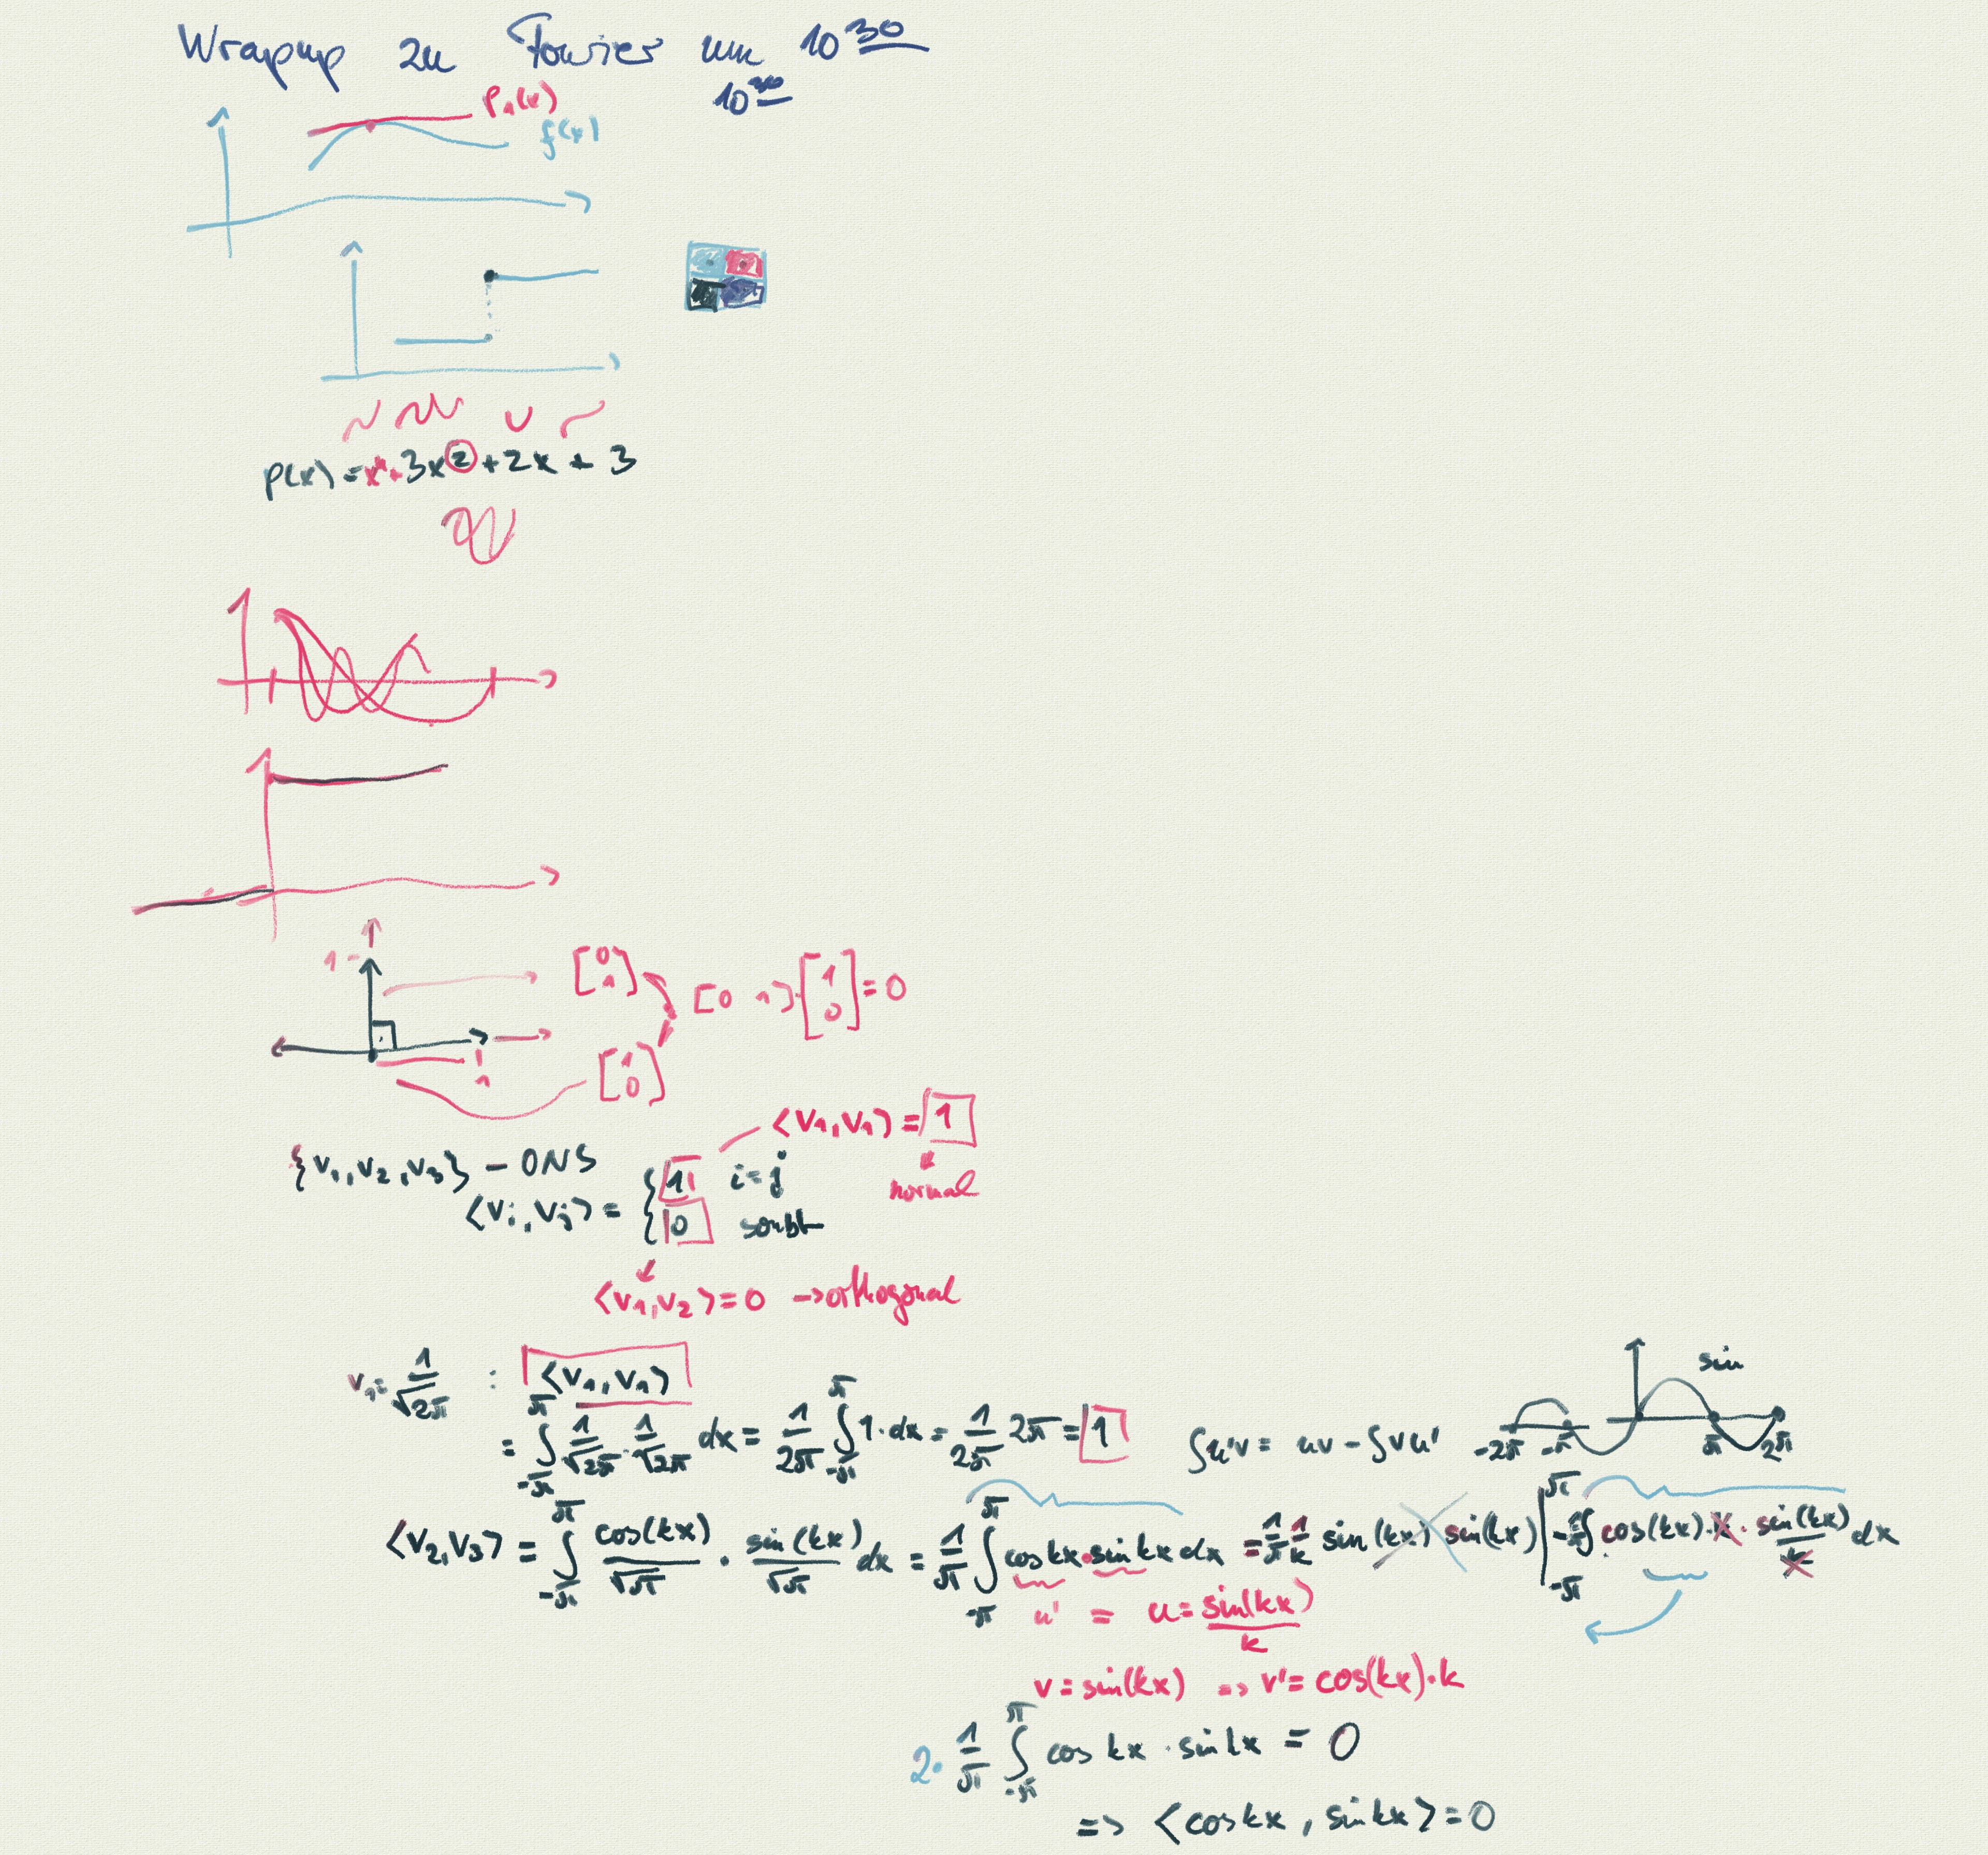 Wrapup zu Fourier um 10 30
10 30
P₁(x)
f(x)
p(x) = x⁴ + 3x² + 2x + 3
1 -
1
[0 1]
[0 1] · [1 0] = 0
[1 0]
⟨v₁, v₁⟩ = 1
{v₁, v₂, v₃} - ONS
normal
⟨vᵢ, vⱼ⟩ = { 1 i = j
0 sonst
⟨v₁, v₂⟩ = 0 → orthogonal
v₁ = 1/√2π : ⟨v₁, v₁⟩
= ∫_{-π}^{π} 1/√2π · 1/√2π dx = 1/2π ∫_{-π}^{π} 1 · dx = 1/2π 2π = 1
∫u'v = uv - ∫vu'
sin
-2π -π π 2π
⟨v₂, v₃⟩ = ∫_{-π}^{π} cos(kx)/√π · sin(kx)/√π dx = 1/π ∫_{-π}^{π} cos kx · sin kx dx = 1/π 1/k sin(kx) sin(kx) |_{-π}^{π} - 1/π ∫ cos(kx) · k · sin(kx)/k dx
u' = u = sin(kx)/k
v = sin(kx) => v' = cos(kx) · k
2 · 1/π ∫_{-π}^{π} cos kx · sin kx = 0
=> ⟨cos kx, sin kx⟩ = 0